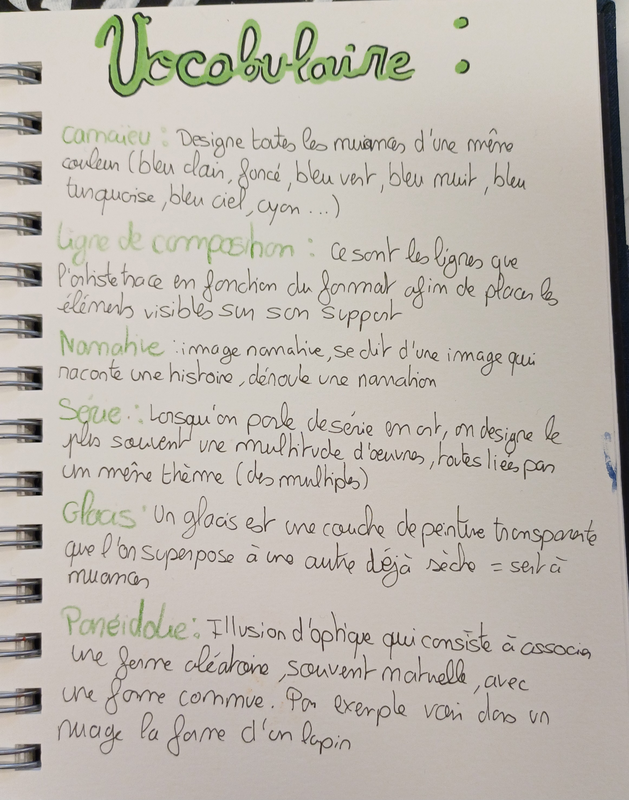 Vocabulaire :
Camaïeu : Designe toutes les nuances d'une même
couleur (bleu clair, foncé, bleu vert, bleu nuit, bleu
turquoise, bleu ciel, cyan ...)
Ligne de composition : Ce sont les lignes que
l'artiste trace en fonction du format afin de placer les
éléments visibles sur son support
Narrative : image narrative, se dit d'une image qui
raconte une histoire, déroule une narration
Série : Lorsqu'on parle de série en art, on designe le
plus souvent une multitude d'oeuvres, toutes liées par
un même thème (des multiples)
Glacis : Un glacis est une couche de peinture transparente
que l'on superpose à une autre déjà sèche = sert à
nuancer
Paréidolie : Illusion d'optique qui consiste à associer
une forme aléatoire, souvent naturelle, avec
une forme connue. Par exemple voir dans un
nuage la forme d'un lapin